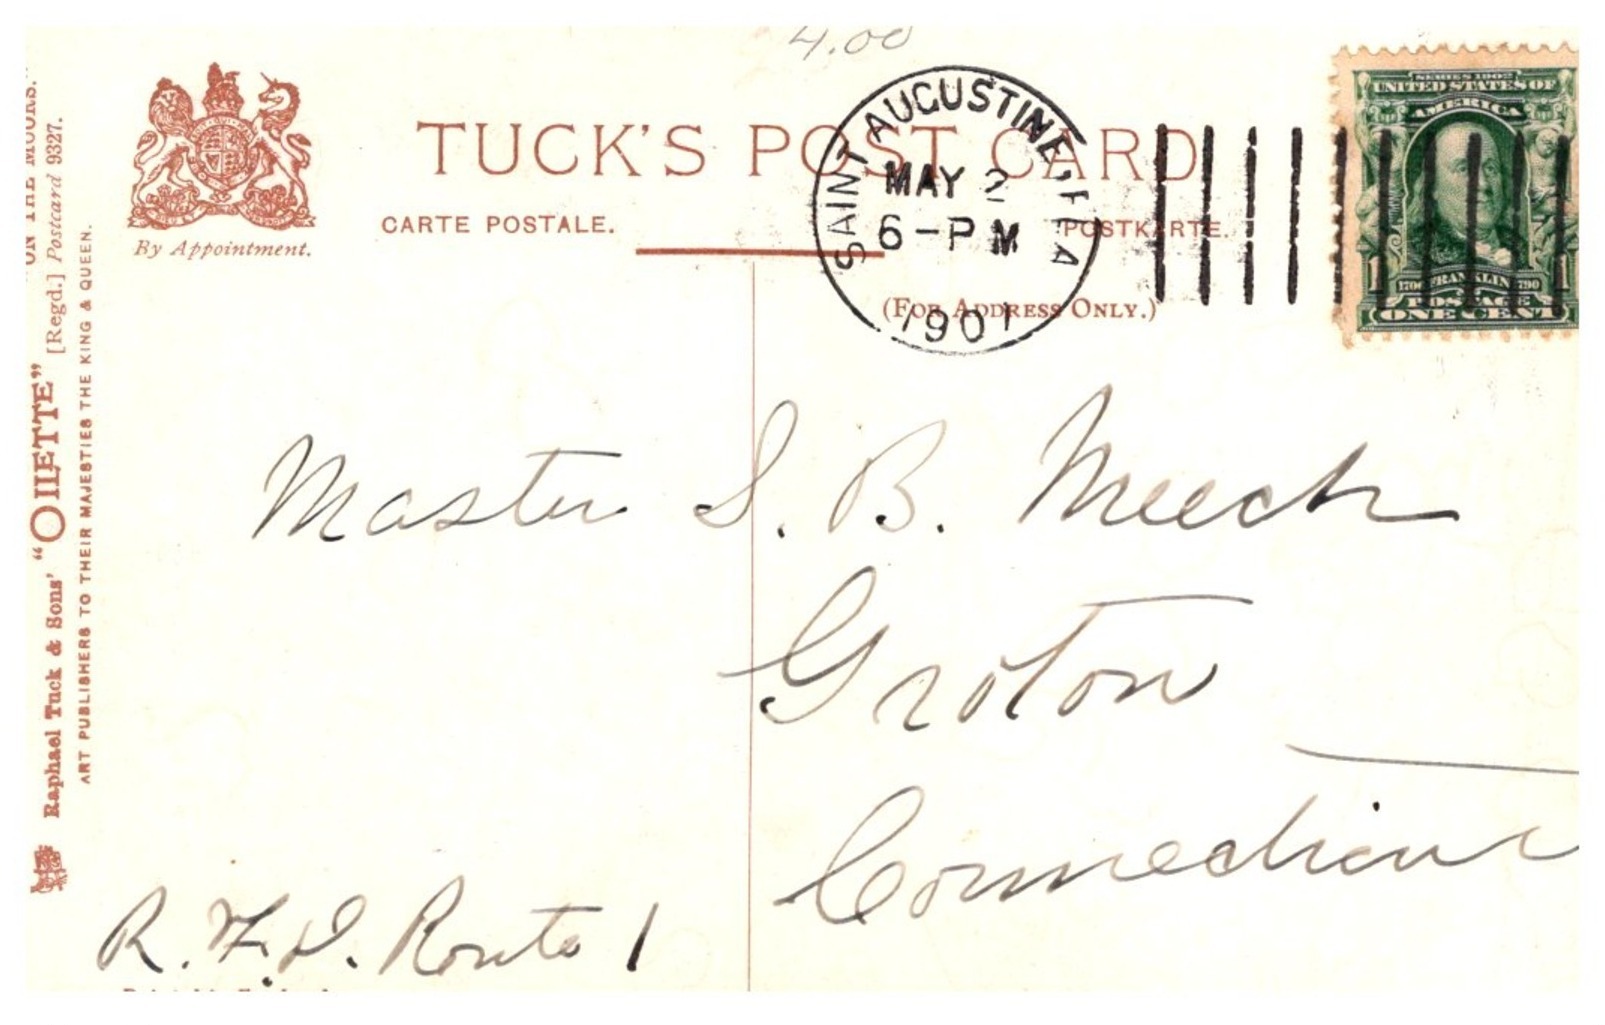 4.00
TUCK'S POST CARD
CARTE POSTALE.
POSTKARTE.
(FOR ADDRESS ONLY.)
By Appointment.
SAINT AUGUSTINE, FLA
MAY 2
6-PM
190
SERIES 1902
UNITED STATES OF
AMERICA
1706 FRANKLIN 1790
1 1
POSTAGE
ONE CENT
"ON THE MOORS."
Raphael Tuck & Sons' "OILETTE" [Regd.] Postcard 9327.
ART PUBLISHERS TO THEIR MAJESTIES THE KING & QUEEN.
Master S. B. Meech
Groton
Connecticut
R. F. D. Route 1